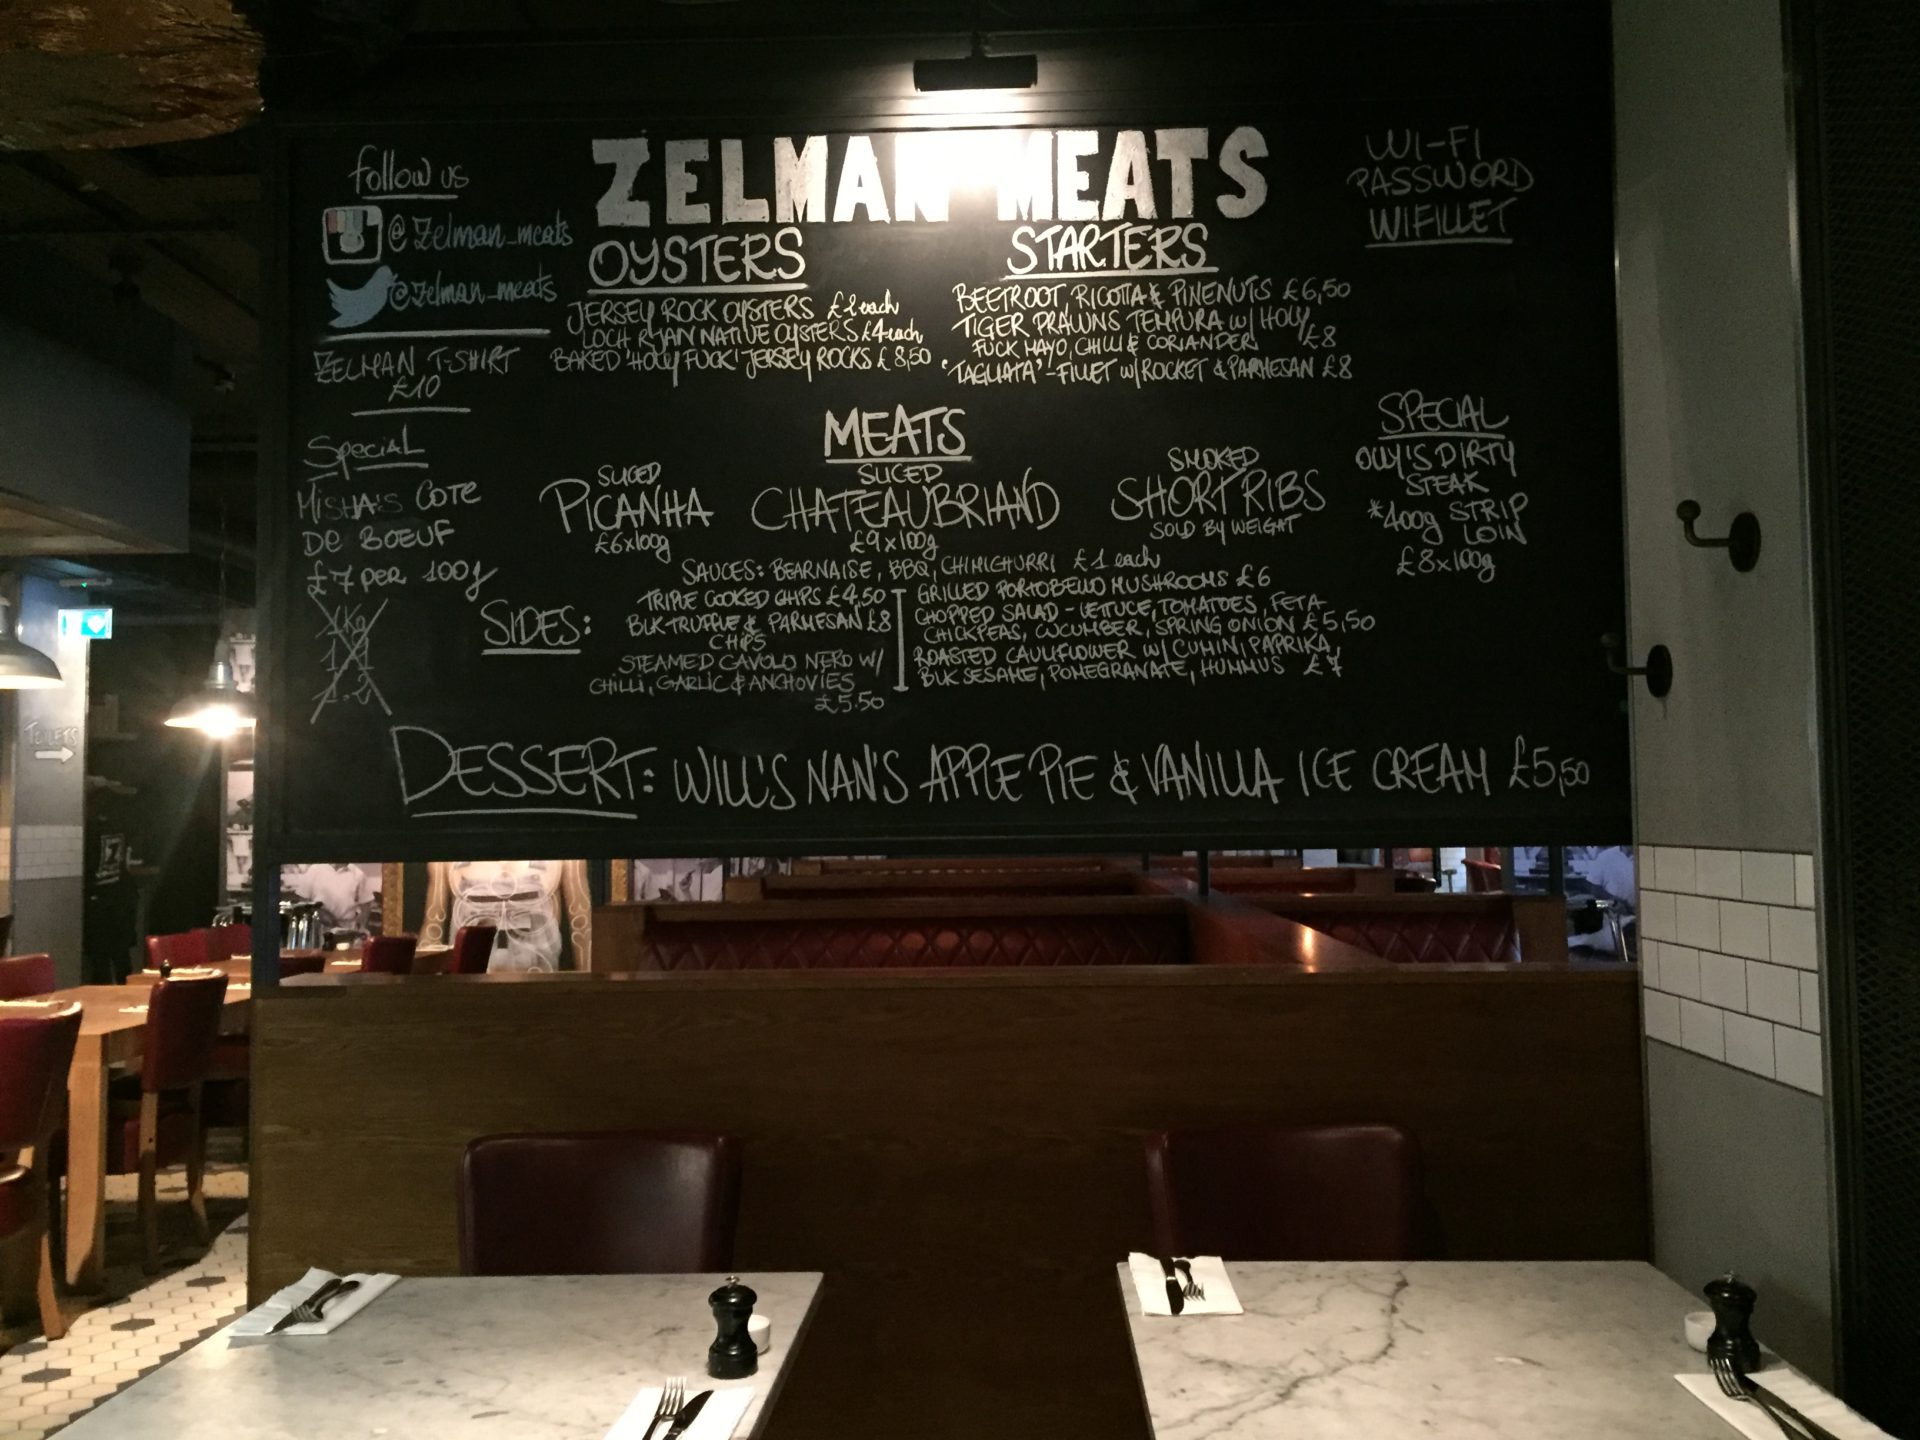 ZELMAN MEATS
follow us
@zelman_meats
@zelman_meats
ZELMAN T-SHIRT
£10
Special
MISHA'S COTE
DE BOEUF
£7 PER 100g
1Kg
1.1
1.2
OYSTERS
JERSEY ROCK OYSTERS £2 each
LOCH RYAN NATIVE OYSTERS £4 each
BAKED 'HOLY FUCK' JERSEY ROCKS £8,50
STARTERS
BEETROOT, RICOTTA & PINENUTS £6,50
TIGER PRAWNS TEMPURA W/ HOLY
FUCK MAYO, CHILLI & CORIANDER £8
'TAGLIATA' - FILLET W/ ROCKET & PARMESAN £8
WI-FI
PASSWORD
WIFILLET
MEATS
SLICED
PICANHA
£6x100g
SLICED
CHATEAUBRIAND
£9x100g
SMOKED
SHORT RIBS
SOLD BY WEIGHT
SPECIAL
OLLY'S DIRTY
STEAK
*400g STRIP
LOIN
£8x100g
SAUCES: BEARNAISE, BBQ, CHIMICHURRI £1 each
SIDES:
TRIPLE COOKED CHIPS £4,50
BLK TRUFFLE & PARMESAN £8
CHIPS
STEAMED CAVOLO NERO W/
CHILLI, GARLIC & ANCHOVIES
£5.50
GRILLED PORTOBELLO MUSHROOMS £6
CHOPPED SALAD - LETUCE, TOMATOES, FETA
CHICKPEAS, CUCUMBER, SPRING ONION £5,50
ROASTED CAULIFLOWER W/ CUMIN, PAPRIKA,
BLK SESAME, POMEGRANATE, HUMMUS £7
DESSERT: WILL'S NAN'S APPLE PIE & VANILLA ICE CREAM £5,50
TOILETS